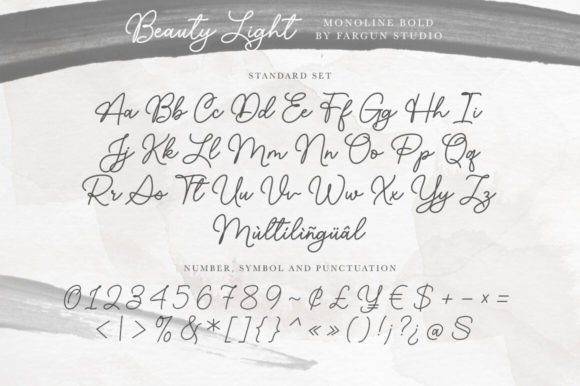 Beauty Light
MONOLINE BOLD
BY FARGUN STUDIO
STANDARD SET
Aa Bb Cc Dd Ee Ff Gg Hh Ii
Jj Kk Ll Mm Nn Oo Pp Qq
Rr Ss Tt Uu Vv Ww Xx Yy Zz
Mùltilìñgüâl
NUMBER, SYMBOL AND PUNCTUATION
0123456789~¢£¥€$+-×=
<|>%&*[]{}^«»()!¡?¿@S